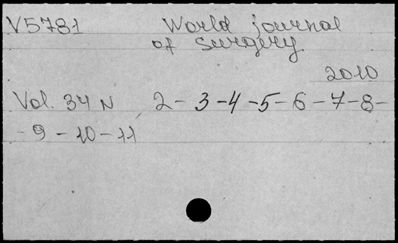 V5781 World journal
of surgery
2010
Vol. 34 N 2-3-4-5-6-7-8-
-9-10-11